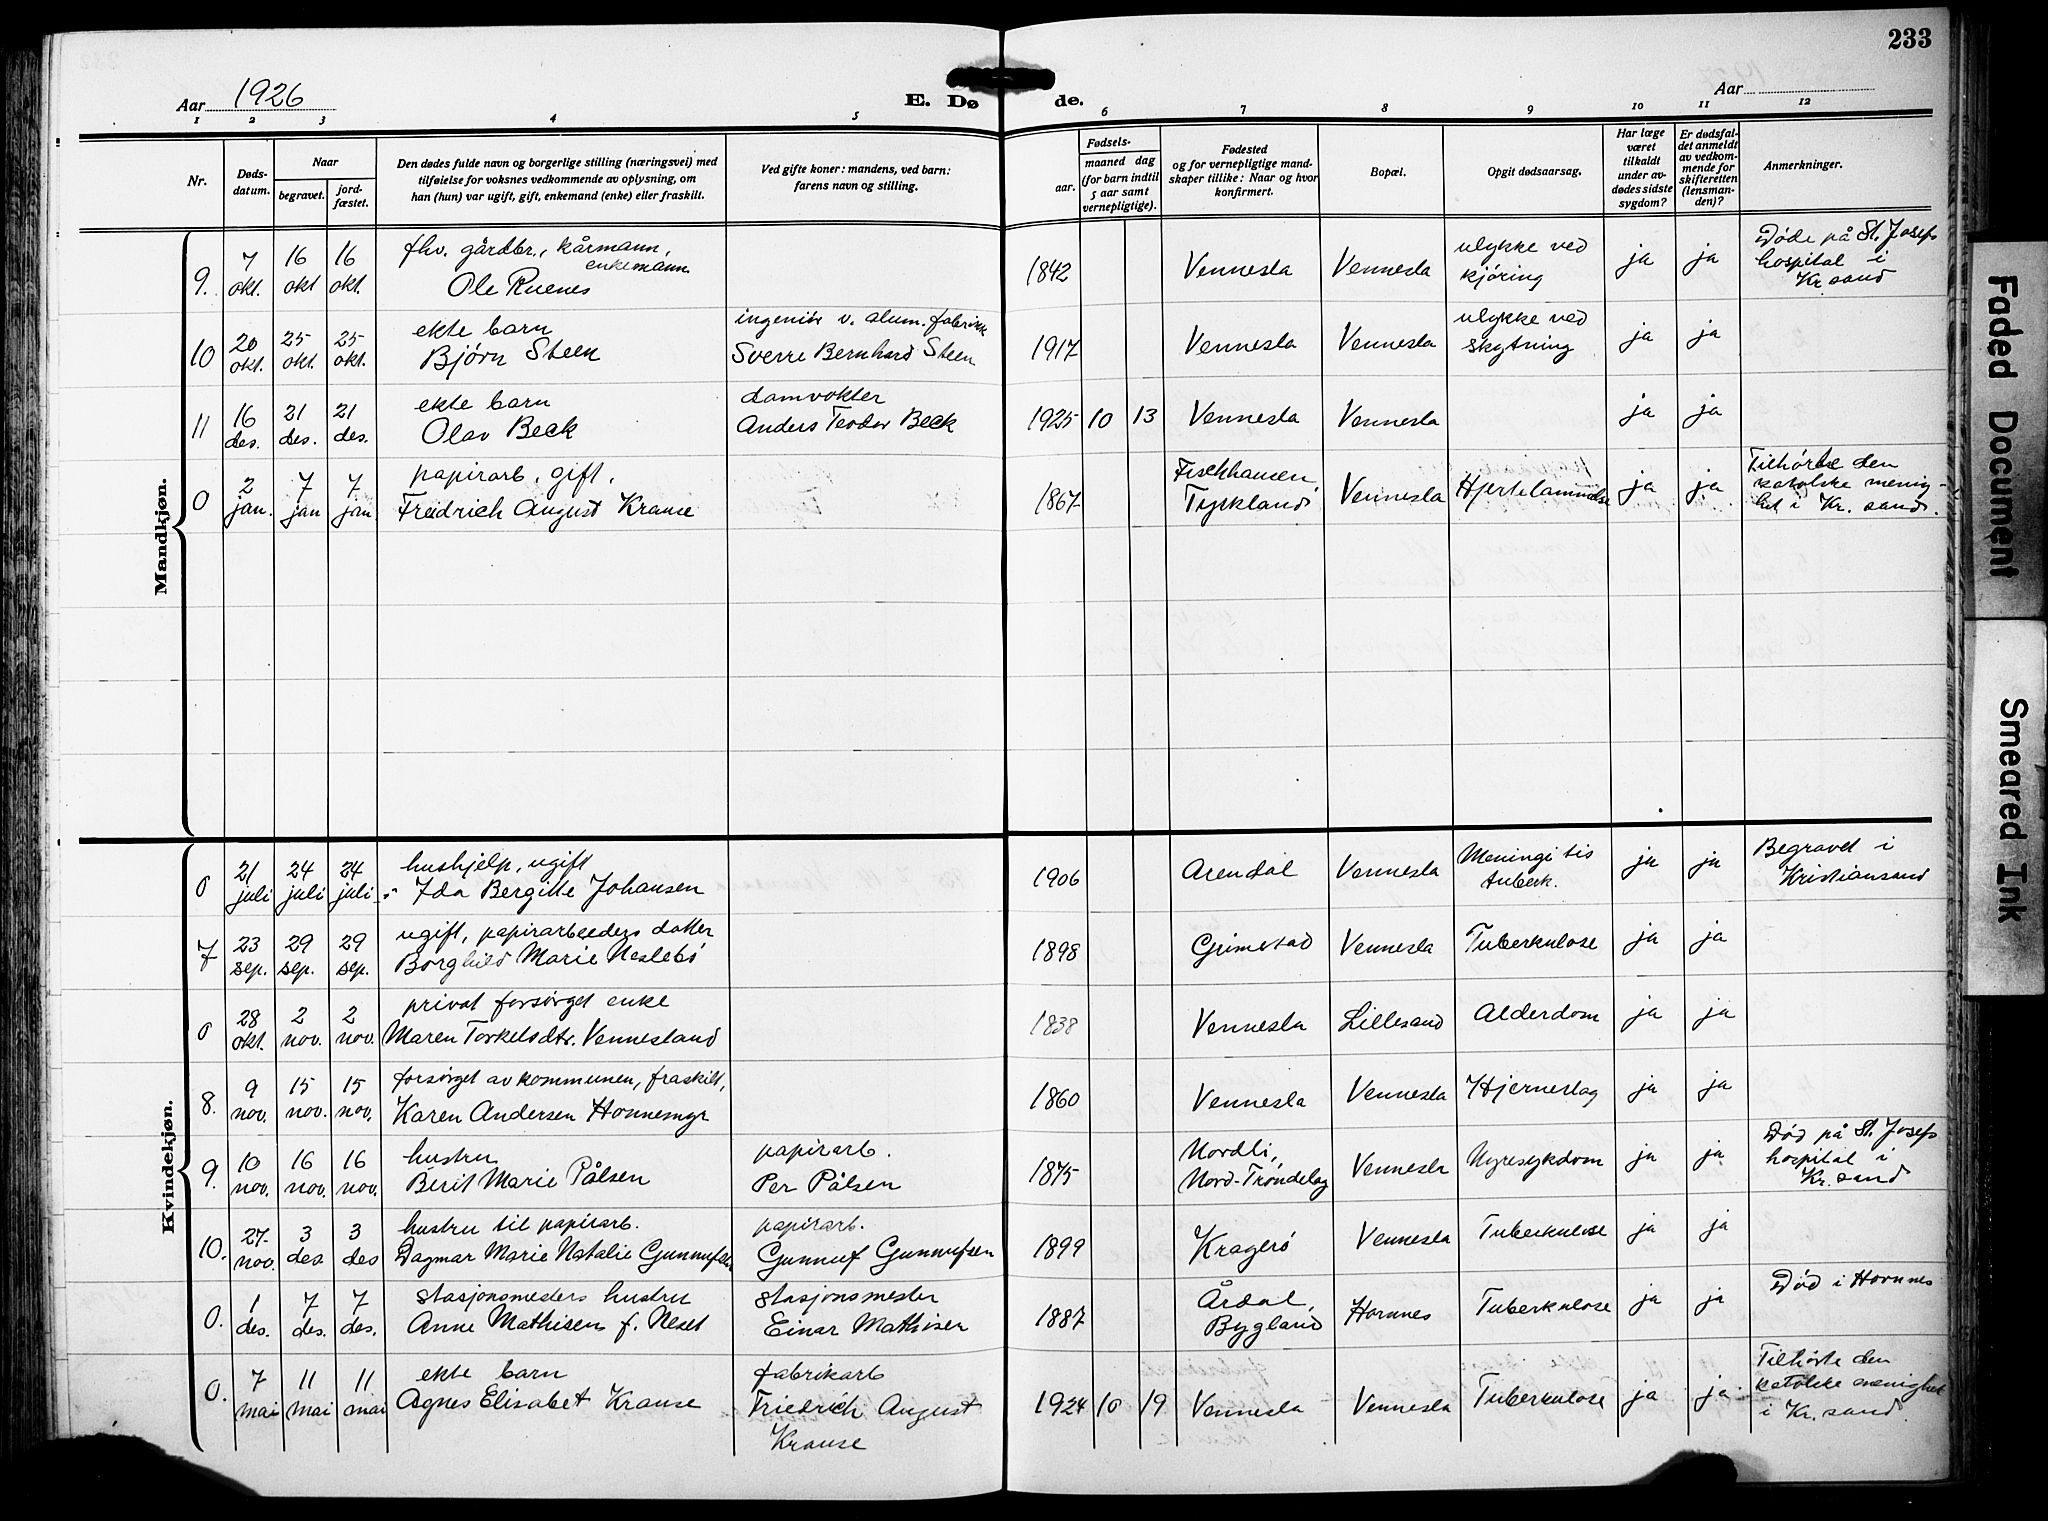 233
Aar 1926
E. Dø
de.
Aar
1 2 3 4 5 6 7 8 9 10 11 12
Nr.
Døds-
datum.
Naar
begravet.
jord-
fæstet.
Den dødes fulde navn og borgerlige stilling (næringsvei) med
tilføielse for voksnes vedkommende av oplysning, om
han (hun) var ugift, gift, enkemand (enke) eller fraskilt.
Ved gifte koner: mandens, ved barn:
farens navn og stilling.
Fødsels-
aar.
maaned dag
(for barn indtil
5 aar samt
vernepligtige).
Fødested
og for vernepligtige mand-
skaper tillike: Naar og hvor
konfirmert.
Bopæl.
Opgit dødsaarsag.
Har læge
været
tilkaldt
under av-
dødes sidste
sygdom?
Er dødsfal-
det anmeldt
av vedkom-
mende for
skifteretten
(lensman-
den)?
Anmerkninger.
Mandkjøn.
9. 7 okt. 16 okt 16 okt.
fhv. gårdbr., kårmann,
enkemann.
Ole Ruenes
1842 Vennesla Vennesla
ulykke ved
kjøring
ja ja
Døde på St. Josefs
hospital i
Kr. sand
10 20 okt. 25 okt. 25 okt.
ekte barn
Bjørn Steen
ingeniør v. alum. fabrikk
Sverre Bernhard Steen
1917 Vennesla Vennesla
ulykke ved
skytning
ja ja
11 16 des. 21 des. 21 des.
ekte barn
Olav Beck
damvokter
Anders Teodor Beck
1925 10 13 Vennesla Vennesla ja ja
0 2 jan. 7 jan 7 jan
papirarb. gift.
Friedrich August Krause
1867
Fischhausen,
Tyskland
Vennesla Hjertelammelse ja ja
Tilhørte den
katolske menig-
het i Kr. sand.
Kvindekjøn.
0 21 juli 24 juli 24 juli
hushjelp, ugift
Ida Bergitte Johansen
1906 Arendal Vennesla
Meningitis
tuberk.
ja ja
Begravet i
Kristiansand
7 23 sep. 29 sep. 29 sep.
ugift, papirarbeiders datter
Borghild Marie Neslebø
1898 Grimstad Vennesla Tuberkulose ja ja
0 28 okt. 2 nov. 2 nov.
privat forsørget enke
Maren Torkelsdtr. Vennesland
1838 Vennesla Lillesand Alderdom ja ja
8. 9 nov. 15 nov. 15 nov.
forsørget av kommunen, fraskilt,
Karen Andersen Honnemyr
1860 Vennesla Vennesla Hjerneslag ja ja
9. 10 nov. 16 nov. 16 nov.
hustru
Berit Marie Pålsen
papirarb.
Per Pålsen
1875
Nordli,
Nord-Trøndelag
Vennesla Nyresykdom ja ja
Død på St. Josefs
hospital i
Kr. sand
10. 27 nov. 3 des. 3 des
hustru til papirarb.
Dagmar Marie Natalie Gunnufsen
papirarb.
Gunnuf Gunnufsen
1899 Kragerø Vennesla Tuberkulose ja ja
0. 1 des. 7 des. 7 des.
stasjonsmesters hustru
Anne Mathisen f. Neset
stasjonsmester
Einar Mathisen
1887
Årdal,
Bygland
Hornnes Tuberkulose ja ja
Død i Hornnes
0. 7 mai 11 mai 11 mai
ekte barn
Agnes Elisabet Krause
fabrikarb
Friedrich August
Krause
1924 10 19 Vennesla Vennesla Tuberkulose ja ja
Tilhørte den
katolske menighet
i Kr. sand.
Faded Document
Smeared Ink